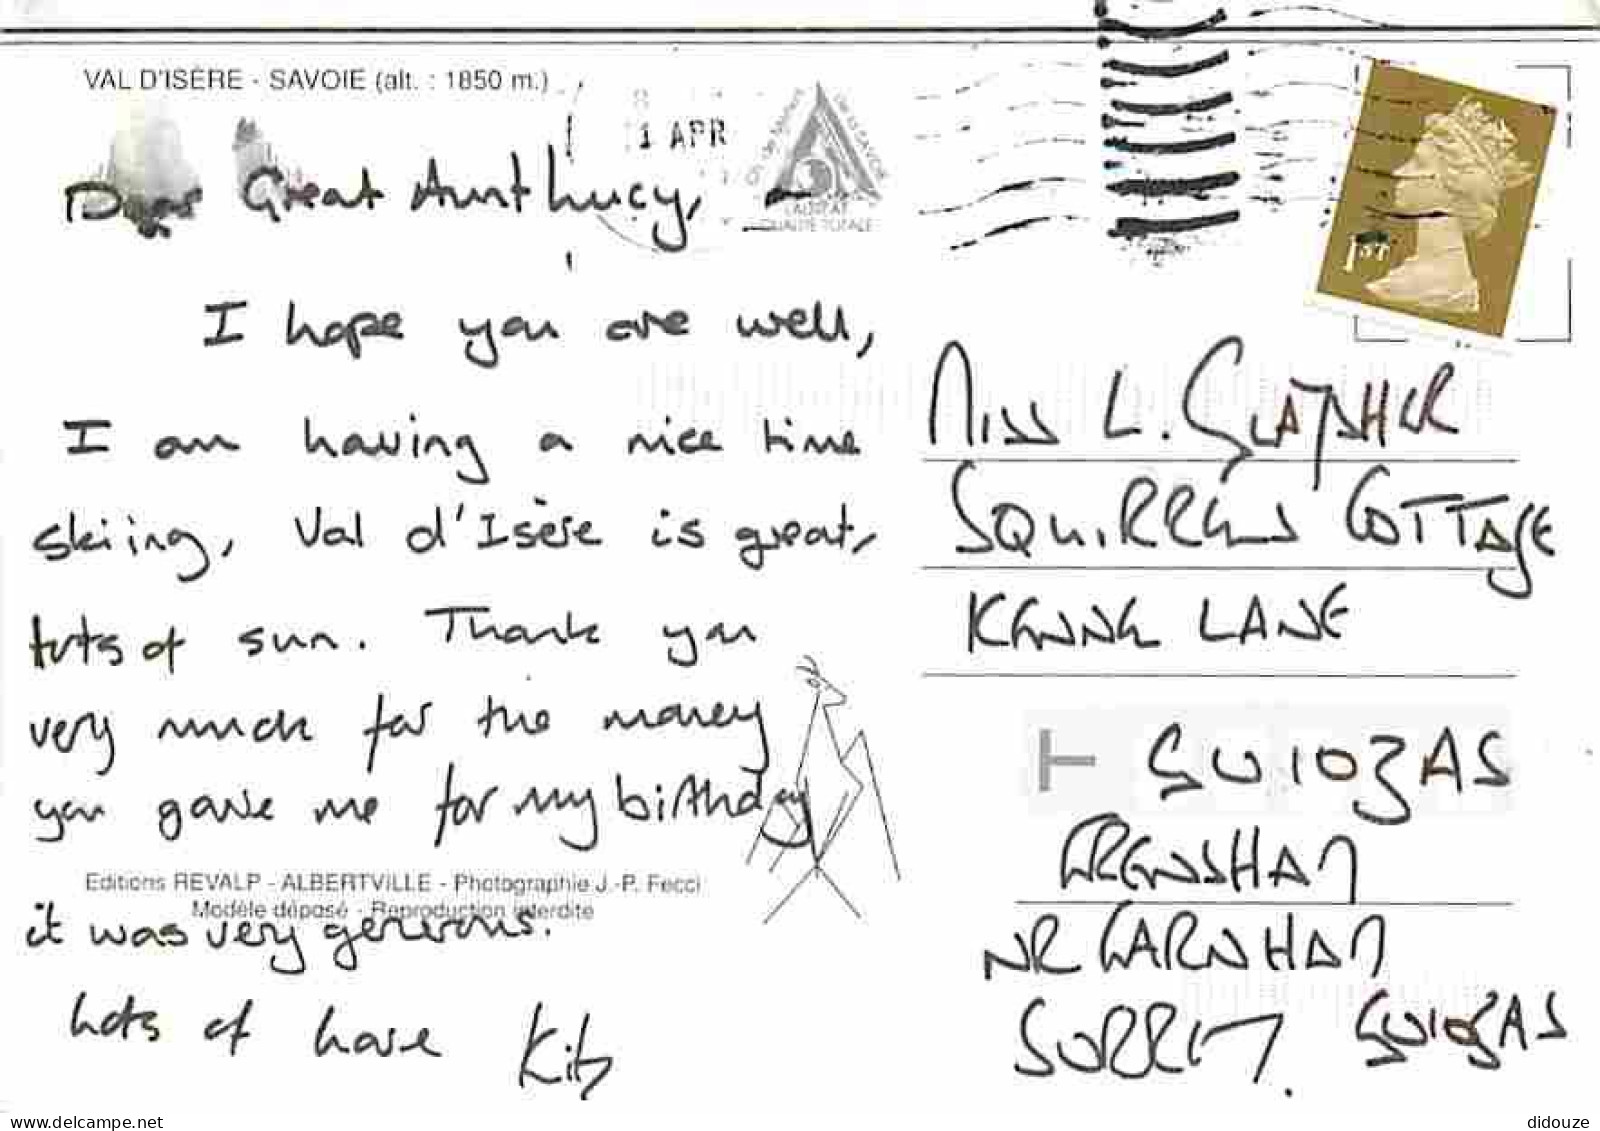 VAL D'ISÈRE - SAVOIE (alt. : 1850 m.)
1 APR
LAURÉAT
QUALITÉ TOTALE
1ST
Dear Great Aunt Lucy,
I hope you are well,
I am having a nice time
skiing, Val d'Isère is great,
lots of sun. Thank you
very much for the money
you gave me for my birthday
it was very generous.
Lots of love Kit
Editions REVALP - ALBERTVILLE - Photographie J.-P. Fecci
Modèle déposé - Reproduction interdite
MISS L.
SQUIRRELS COTTAGE
KENNEL LANE
T GU103AS
FRENSHAM
NR FARNHAM
SURREY. GU103AS
www.delcampe.net
didouze